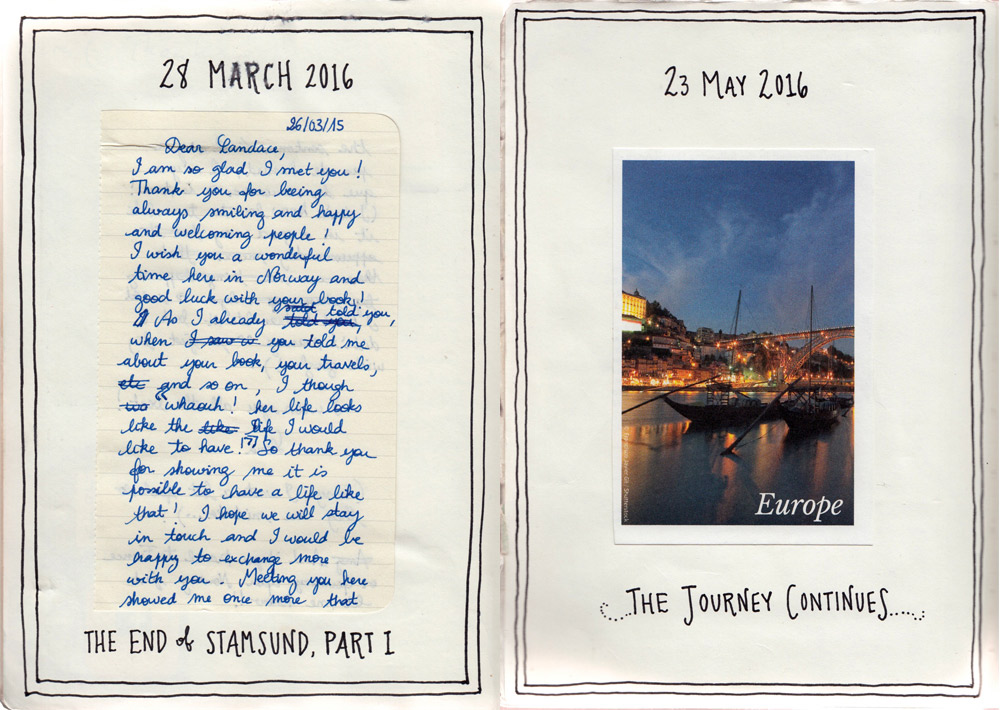 28 MARCH 2016
26/03/15
Dear Candace,
I am so glad I met you!
Thank you for beeing
always smiling and happy
and welcoming people!
I wish you a wonderful
time here in Norway and
good luck with your book!
As I already told you,
when I saw w you told me
about your book, your travels,
etc and so on, I though
two "whaouh! her life looks
like the like life I would
like to have!" So thank you
for showing me it is
possible to have a life like
that! I hope we will stay
in touch and I would be
happy to exchange more
with you. Meeting you here
showed me once more that
THE END of STAMSUND, PART I
23 MAY 2016
Shutterstock
Europe
THE JOURNEY CONTINUES.....